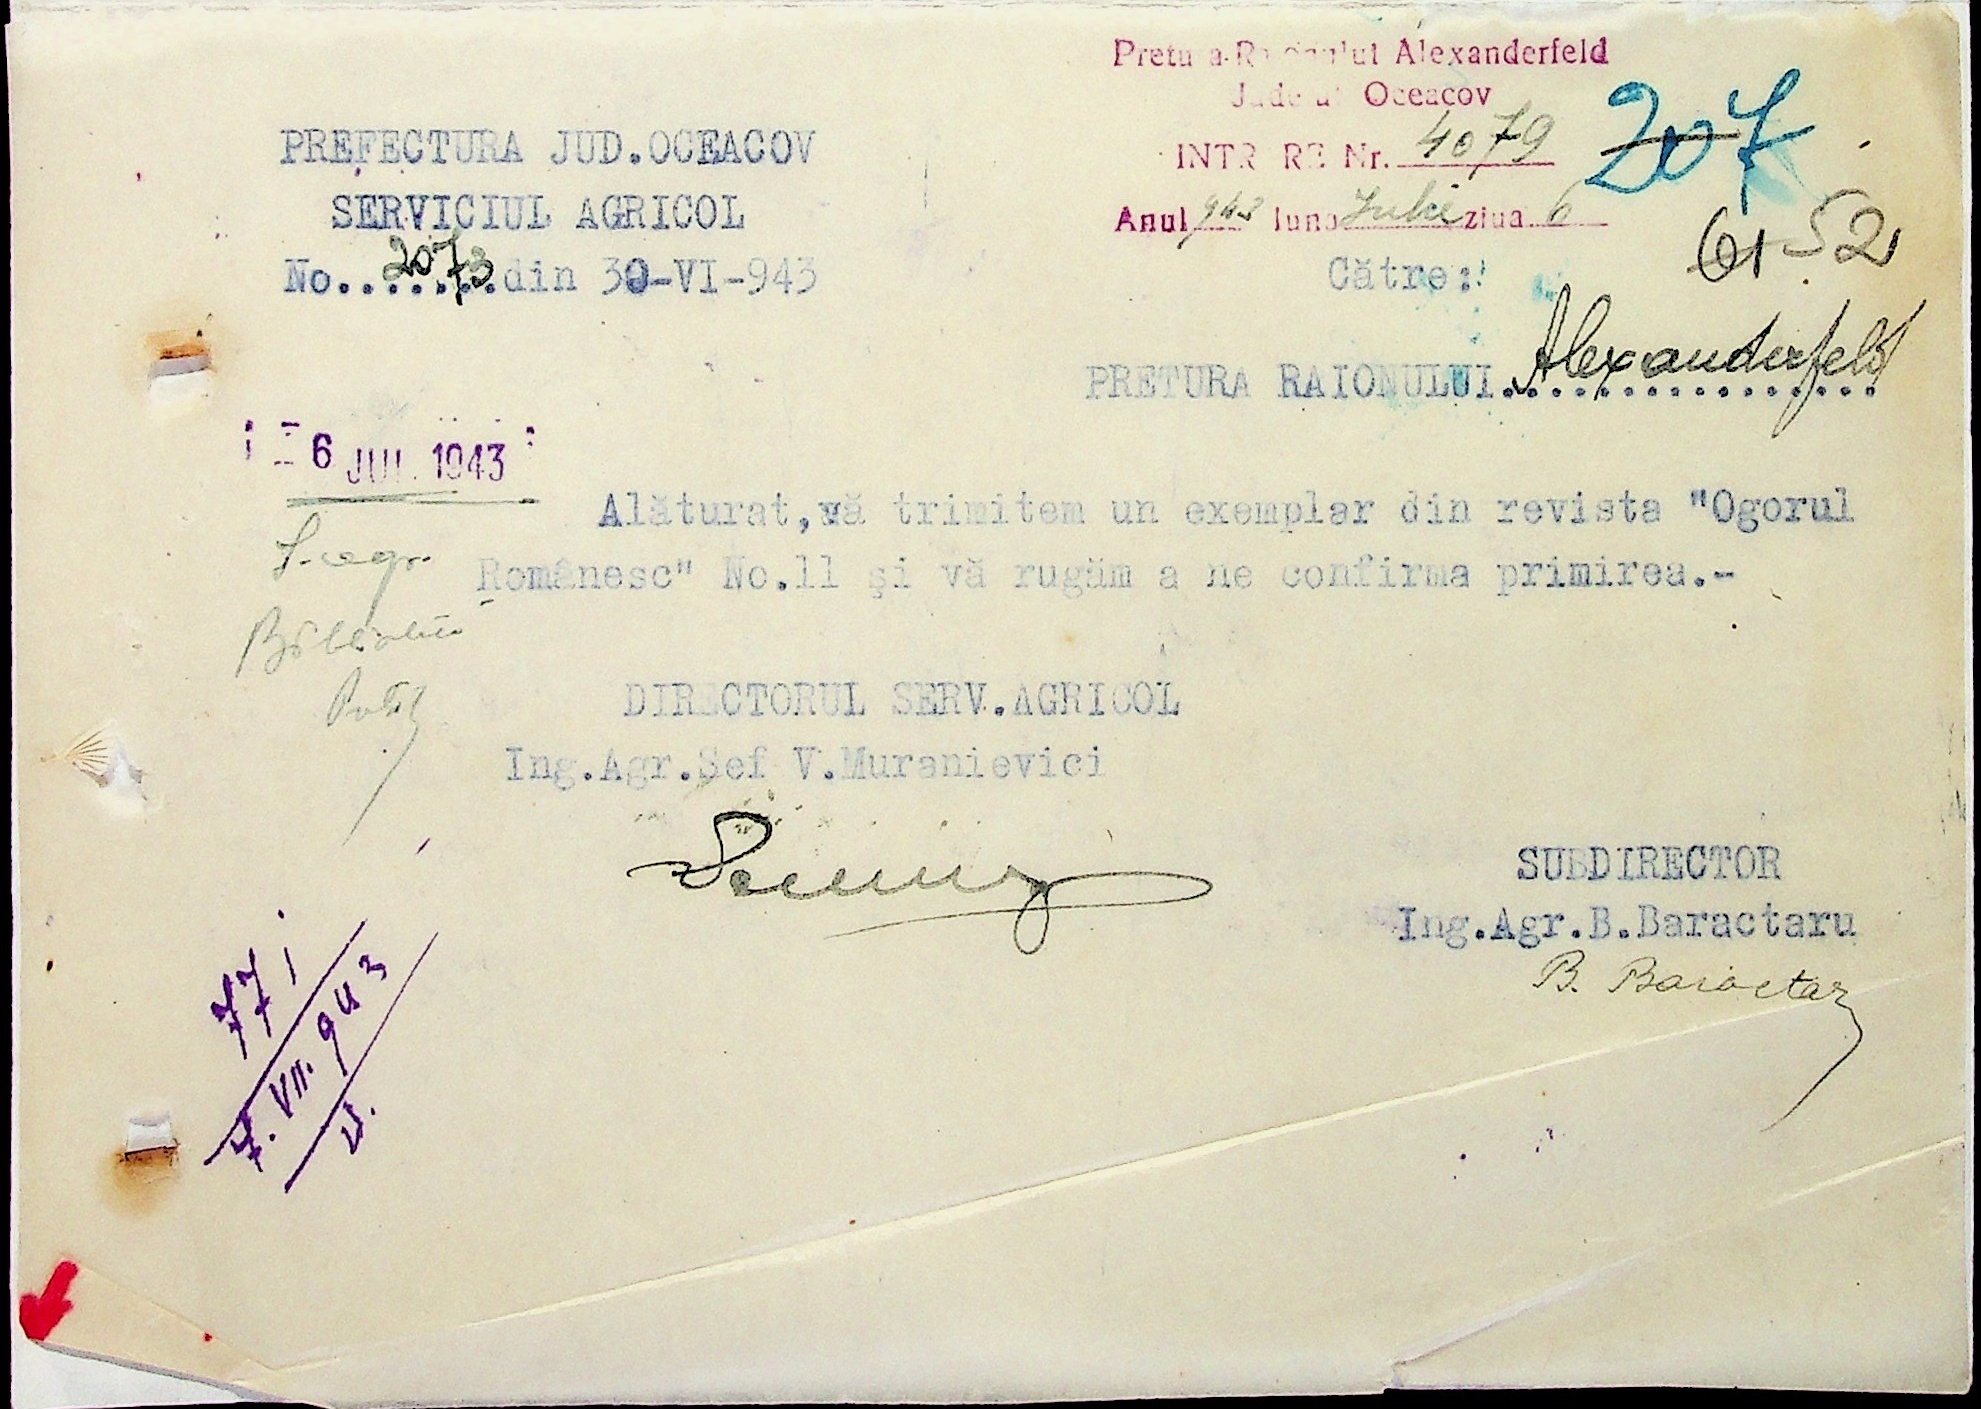 Pretura Raionului Alexanderfeld
Județul Oceacov
INTRARE Nr. 4079
Anul 943 luna Iulie ziua 6
207
61 52
PREFECTURA JUD.OCEACOV
SERVICIUL AGRICOL
No..2073..din 30-VI-943
Către:
PRETURA RAIONULUI Alexanderfeld
6 JUL. 1943
Alăturat,vă trimitem un exemplar din revista "Ogorul
Românesc" No.11 și vă rugăm a ne confirma primirea.-
S. agr.
DIRECTORUL SERV.AGRICOL
Ing.Agr.Șef V.Muranievici
SUBDIRECTOR
Ing.Agr.B.Baractaru
B. Baractaru
77
7.VII.943